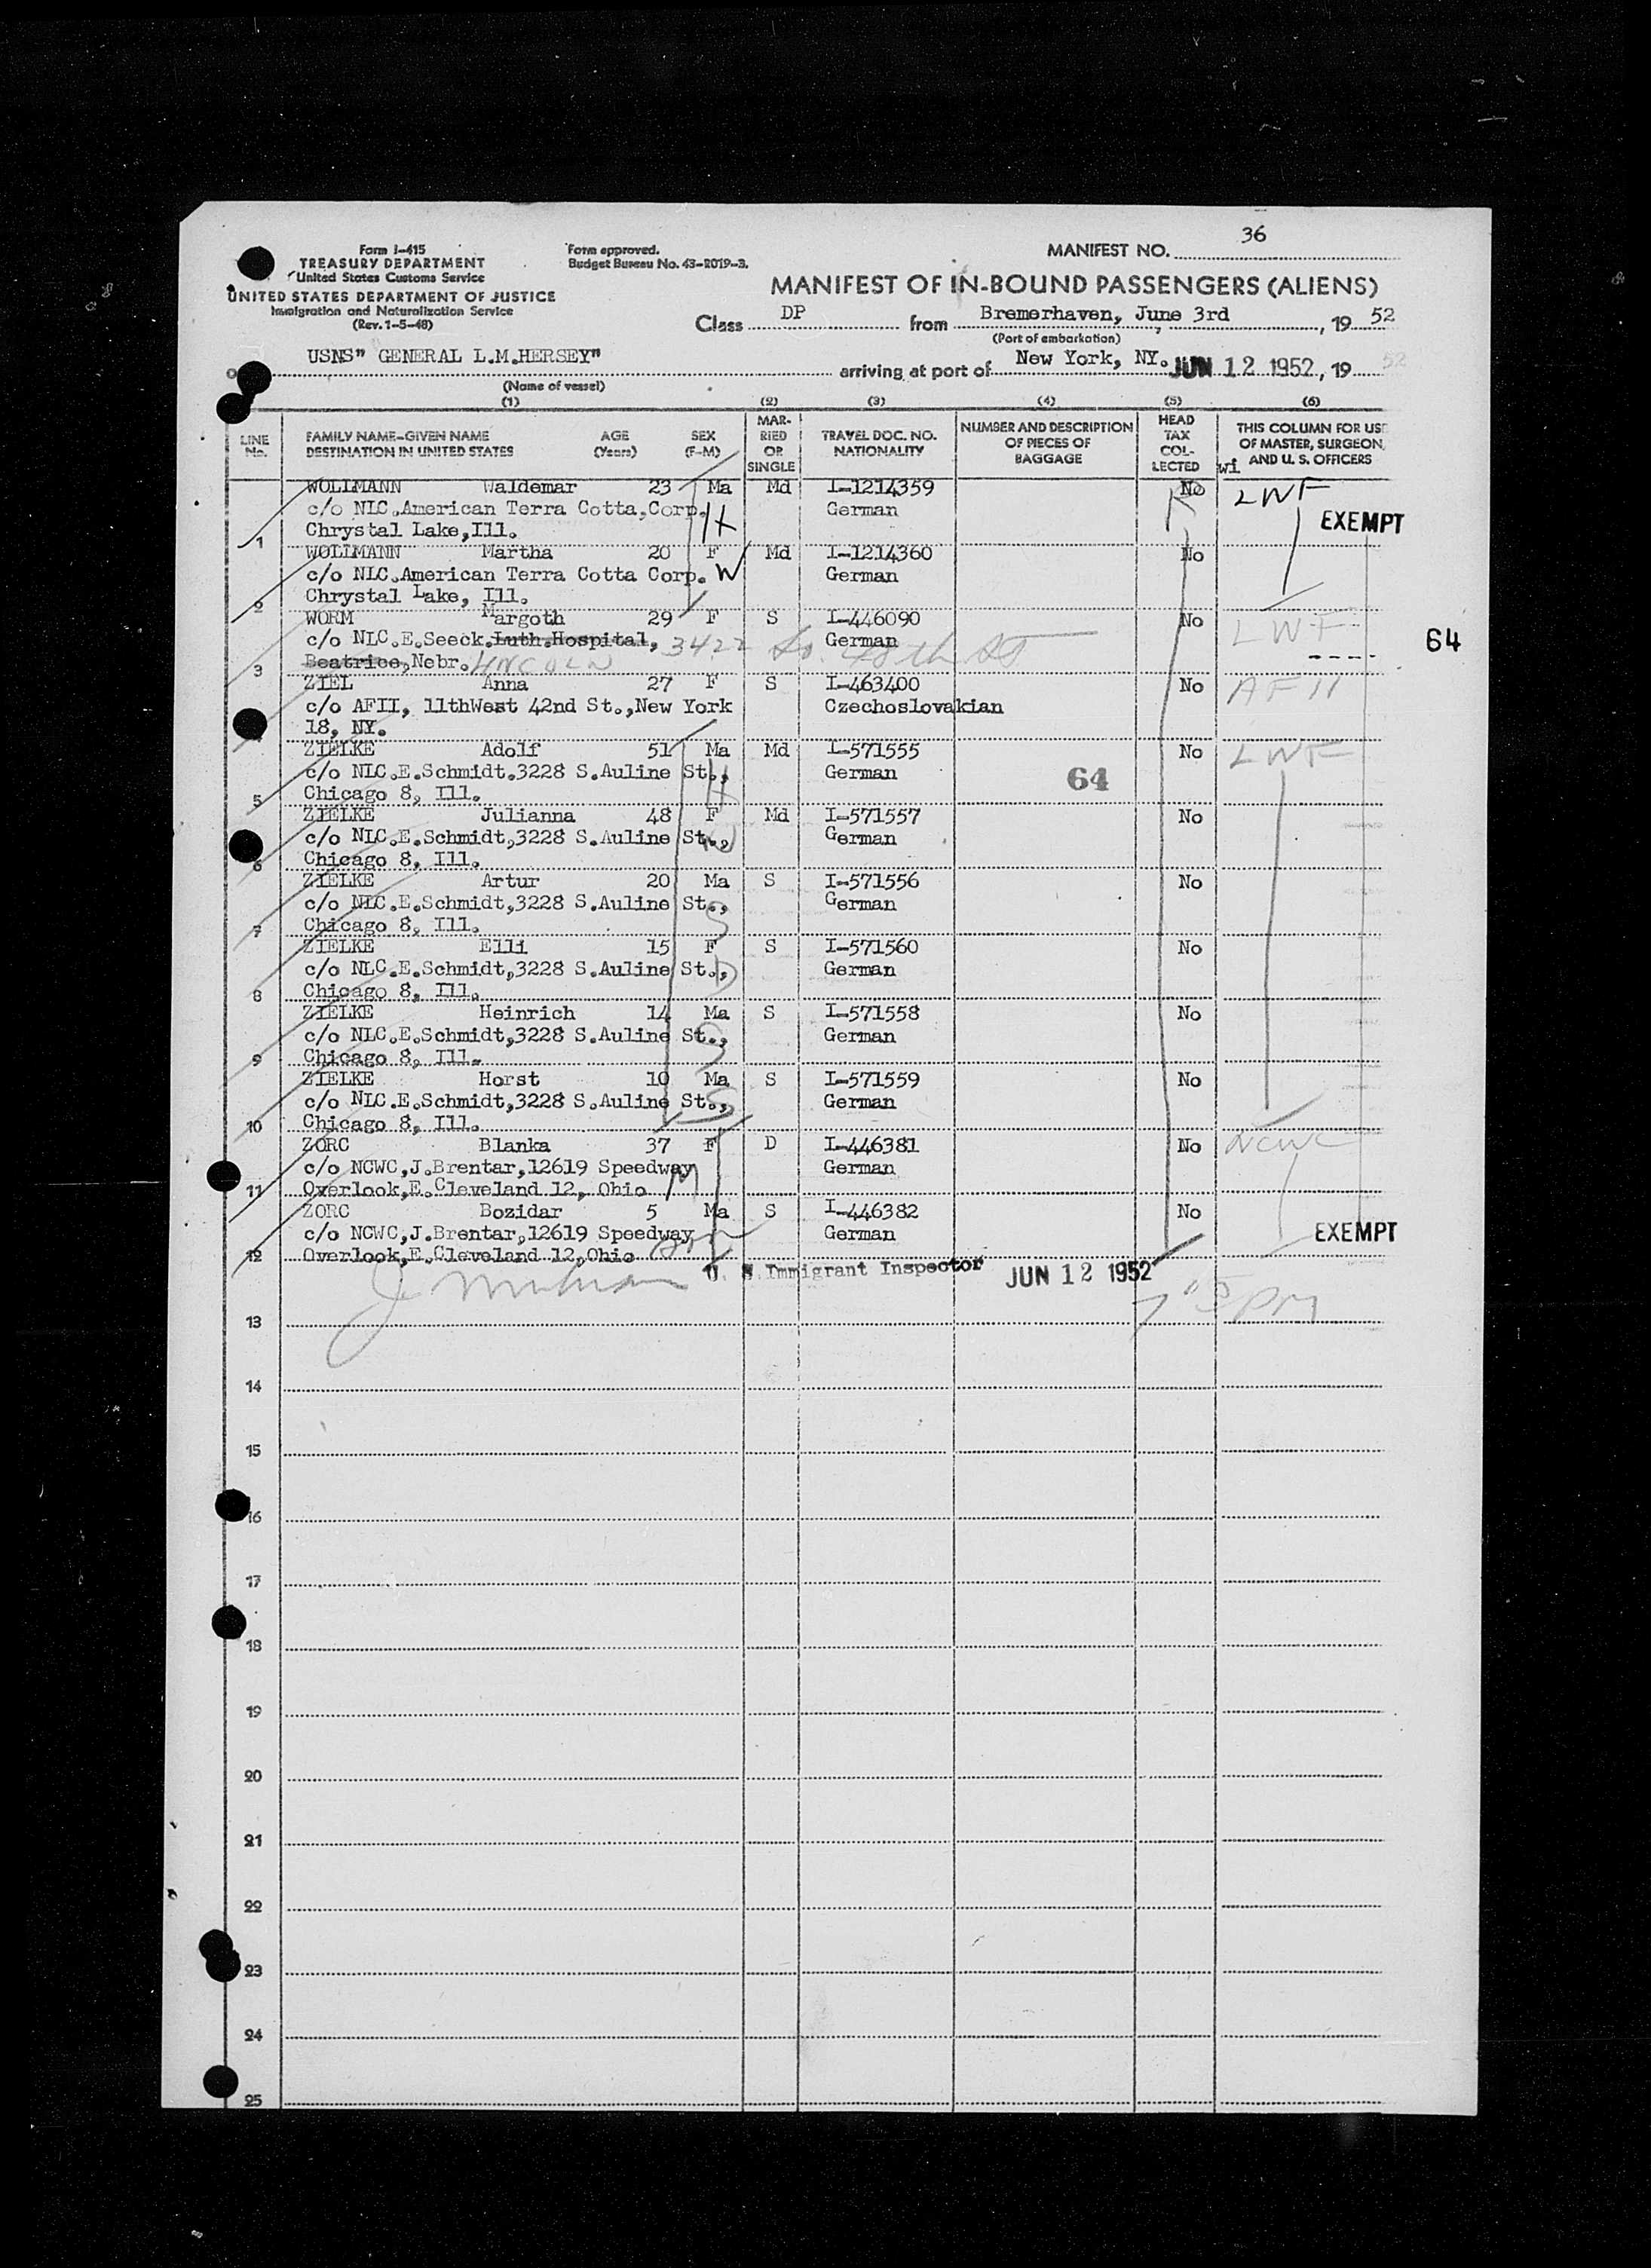 36
Form I-415
TREASURY DEPARTMENT
United States Customs Service
UNITED STATES DEPARTMENT OF JUSTICE
Immigration and Naturalization Service
(Rev. 1-5-48)
Form approved.
Budget Bureau No. 43-R019-3.
MANIFEST NO.
MANIFEST OF IN-BOUND PASSENGERS (ALIENS)
Class DP from Bremerhaven, June 3rd, 19 52
(Port of embarkation)
USNS" GENERAL L.M.HERSEY" arriving at port of New York, NY. JUN 12 1952, 19 52
(Name of vessel)
(1) (2) (3) (4) (5) (6)
LINE No. FAMILY NAME-GIVEN NAME DESTINATION IN UNITED STATES AGE (Years) SEX (F-M) MARRIED OR SINGLE TRAVEL DOC. NO. NATIONALITY NUMBER AND DESCRIPTION OF PIECES OF BAGGAGE HEAD TAX COLLECTED THIS COLUMN FOR USE OF MASTER, SURGEON, AND U. S. OFFICERS
wi
WOLLMANN Waldemar 23 Ma Md I-1214359 No LWF
c/o NLC.American Terra Cotta,Corp. H German EXEMPT
1 Chrystal Lake,Ill.
WOLLMANN Martha 20 F Md I-1214360 No
c/o NLC.American Terra Cotta Corp. W German
2 Chrystal Lake, Ill.
WORM Margoth 29 F S I-446090 No LWF
c/o NLC.E.Seeck.Luth.Hospital, 3422 So. 48th St German 64
3 Beatrice,Nebr. LINCOLN
ZIEL Anna 27 F S I-463400 No AFII
c/o AFII, 11thWest 42nd St.,New York Czechoslovakian
18, NY.
ZIELKE Adolf 51 Ma Md I-571555 No LWF
c/o NLC.E.Schmidt.3228 S.Auline St., H German 64
5 Chicago 8, Ill.
ZIELKE Julianna 48 F Md I-571557 No
c/o NLC.E.Schmidt,3228 S.Auline St., W German
6 Chicago 8, Ill.
ZIELKE Artur 20 Ma S I-571556 No
c/o NLC.E.Schmidt,3228 S.Auline St., S German
7 Chicago 8, Ill.
ZIELKE Elli 15 F S I-571560 No
c/o NLC.E.Schmidt,3228 S.Auline St., D German
8 Chicago 8, Ill.
ZIELKE Heinrich 14 Ma S I-571558 No
c/o NLC.E.Schmidt,3228 S.Auline St., S German
9 Chicago 8, Ill.
ZIELKE Horst 10 Ma S I-571559 No
c/o NLC.E.Schmidt,3228 S.Auline St., S German
10 Chicago 8, Ill.
ZORC Blanka 37 F D I-446381 No NCWC
c/o NCWC,J.Brentar,12619 Speedway German
11 Overlook,E.Cleveland 12, Ohio M
ZORC Bozidar 5 Ma S I-446382 No
c/o NCWC,J.Brentar,12619 Speedway German EXEMPT
12 Overlook,E.Cleveland 12,Ohio son
U. S. Immigrant Inspector JUN 12 1952
13
14
15
16
17
18
19
20
21
22
23
24
25